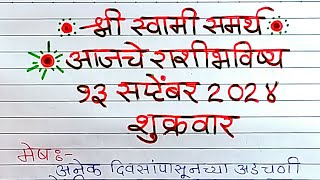 श्री स्वामी समर्थ
आजचे राशीभविष्य
१३ सप्टेंबर २०२४
शुक्रवार
मेष:-
अनेक दिवसांपासूनच्या अडचणी